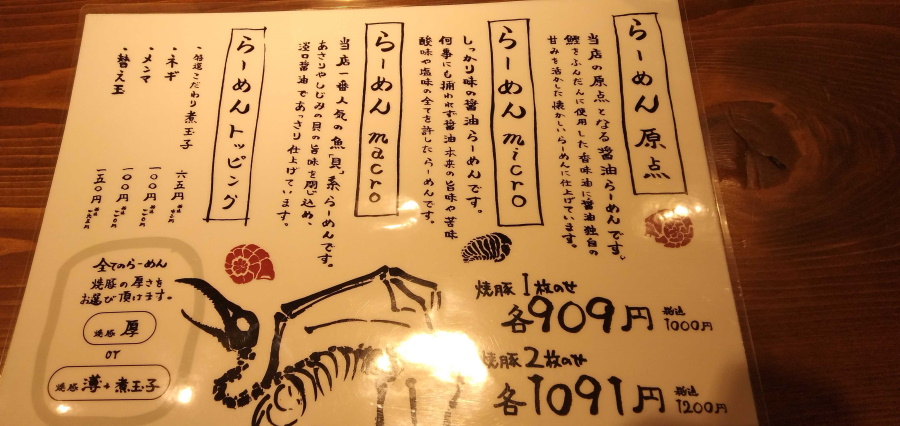 らーめん 原点
当店の原点となる醤油らーめんです。
鰹をふんだんに使用した香味油に醤油独自の
甘みを活かした懐かしいらーめんに仕上げています。
らーめん micro
しっかり味の醤油らーめんです。
何事にも捕われず醤油本来の旨味や苦味
酸味や塩味の全てを許したらーめんです。
らーめん macro
当店一番人気の魚「貝」系らーめんです。
あさりやしじみの貝の旨味を閉じ込め、
淡口醤油であっさり仕上げています。
らーめんトッピング
・特選こだわり煮玉子 六五円
・ネギ 一〇〇円
・メンマ 一〇〇円
・替え玉 一五〇円
全てのらーめん
焼豚の厚さを
お選び頂けます。
焼豚 厚
or
焼豚 薄+煮玉子
焼豚1枚のせ
各909円 税込1000円
焼豚2枚のせ
各1091円 税込1200円